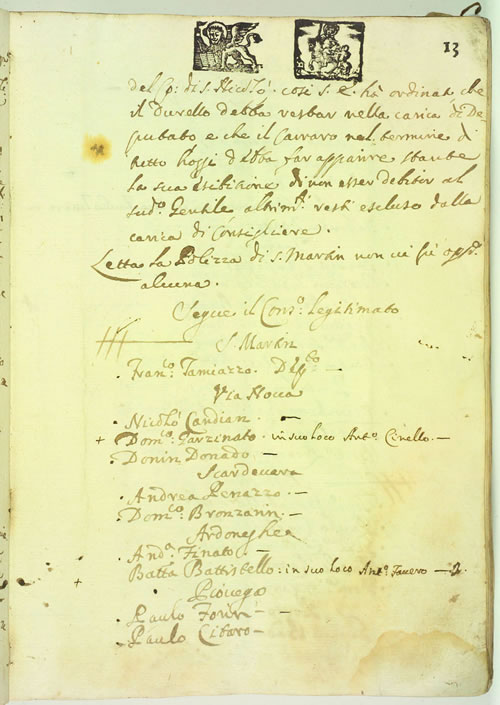 13
del Co: di S. Nicolò. così S. E. hà ordinat. che
il Durello debba restar nella carica di De
putato e che il Carraro nel termine di
Hoggi debba far apparire stante
la sua esibitione di non esser debitor al
sud.o Gentile altrim.ti resti escluso dalla
carica di Consigliere.
Letta la Polizza di S. Martin non vi fù
alcuna.
Segue il Cons.o Legitimato
S. Martin
Fran.co: Tamiazzo. Dep.to —
Via Nocca
. Nicolò Candian. —
+ Dom.co: Tarzinato. in suo loco Ant.o Cinello. —
. Donin Donado. —
Scardevara
. Andrea Penazzo. —
. Dom.co: Bronzann. —
Ardoneghea
. And.a: Finato. —
Batta Battistello: in suo loco Ant.o Favero —
+
Piovega
. Paulo —
. Paulo Cibaro —